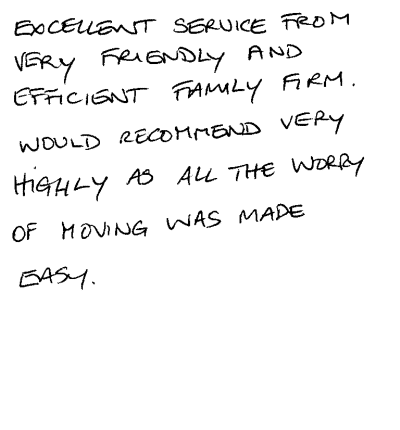 EXCELLENT SERVICE FROM
VERY FRIENDLY AND
EFFICIENT FAMILY FIRM.
WOULD RECOMMEND VERY
HIGHLY AS ALL THE WORRY
OF MOVING WAS MADE
EASY.